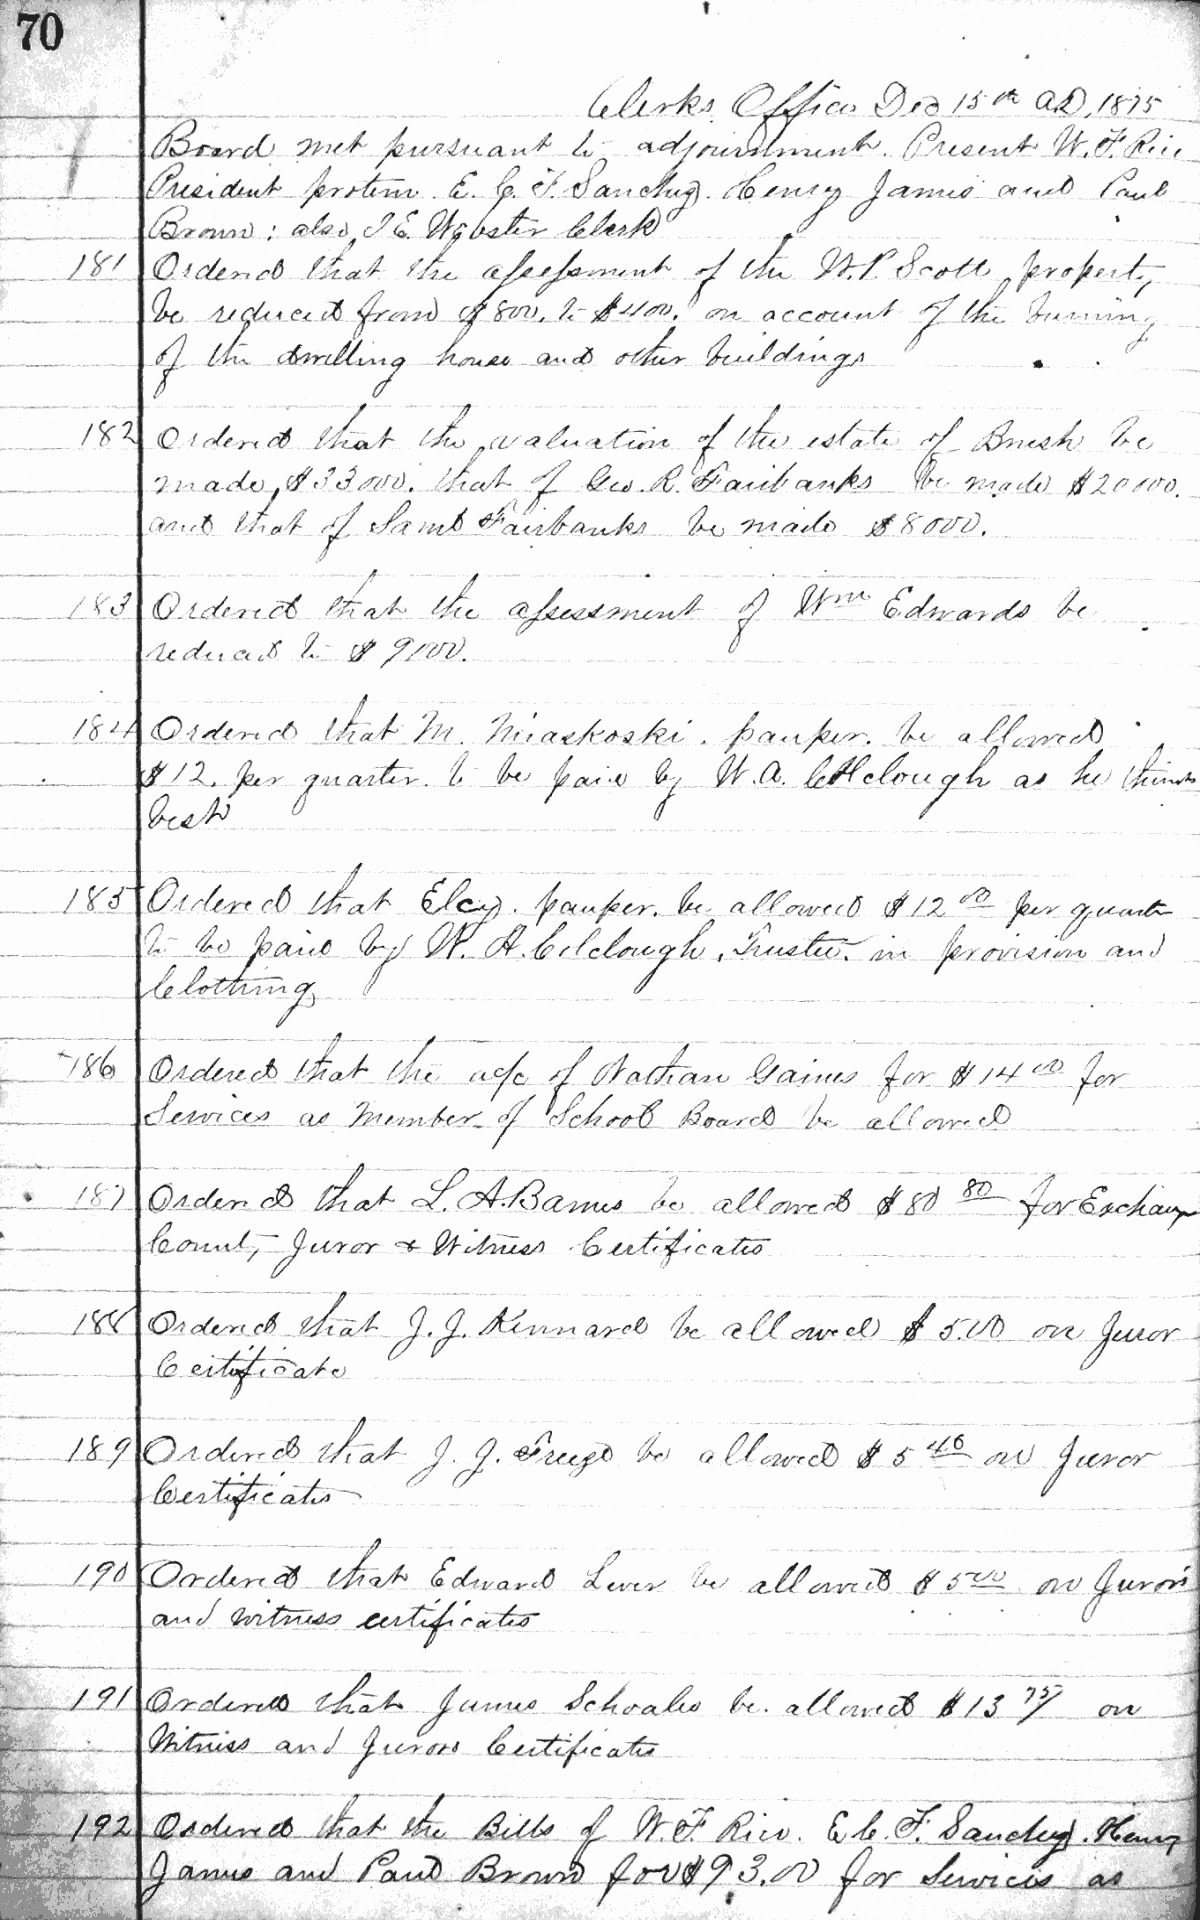 70
Clerks Office Dec 15th AD, 1875
Board met pursuant to adjournment. Present W. F. Rice
President protem. E. C. F. Sanchez. Henry James and Paul
Brown: also, J E. Webster Clerk
181 Ordered that the assessment of the W. P. Scott property
be reduced from $800. to $400. on account of the burning
of the dwelling house and other buildings
182 Ordered that the valuation of the estate of Brush be
made $33000. that of Geo. R. Fairbanks be made $20000.
and that of Saml Fairbanks be made $8000.
183 Ordered that the assessment of Wm Edwards be
reduced to $9000.
184 Ordered that M. Miaskoski. pauper. be allowed
$12. per quarter. to be paid by W. A. Colclough as he thinks
best
185 Ordered that Elcy. pauper. be allowed $12 00 per quarter
to be paid by W. A. Colclough, Trustee. in provision and
Clothing
186 Ordered that the a/c of Nathan Gaines for $14 00 for
Services as Member of School Board be allowed
187 Ordered that L. A. Barnes be allowed $80 80 for Exchange
County Juror & Witness Certificates
188 Ordered that J. J. Kennard be allowed $5.00 on Juror
Certificate
189 Ordered that J. J. be allowed $5 40 on Juror
Certificates
190 Ordered that Edward Lever be allowed $5 00 on Jurors
and witness certificates
191 Ordered that James Schoales be. allowed $13 75/ on
Witness and Jurors Certificates
192 Ordered that the Bills of W. F. Rice. E. C. F. Sanchez. Henry
James and Paul Brown for $93.00 for Services as